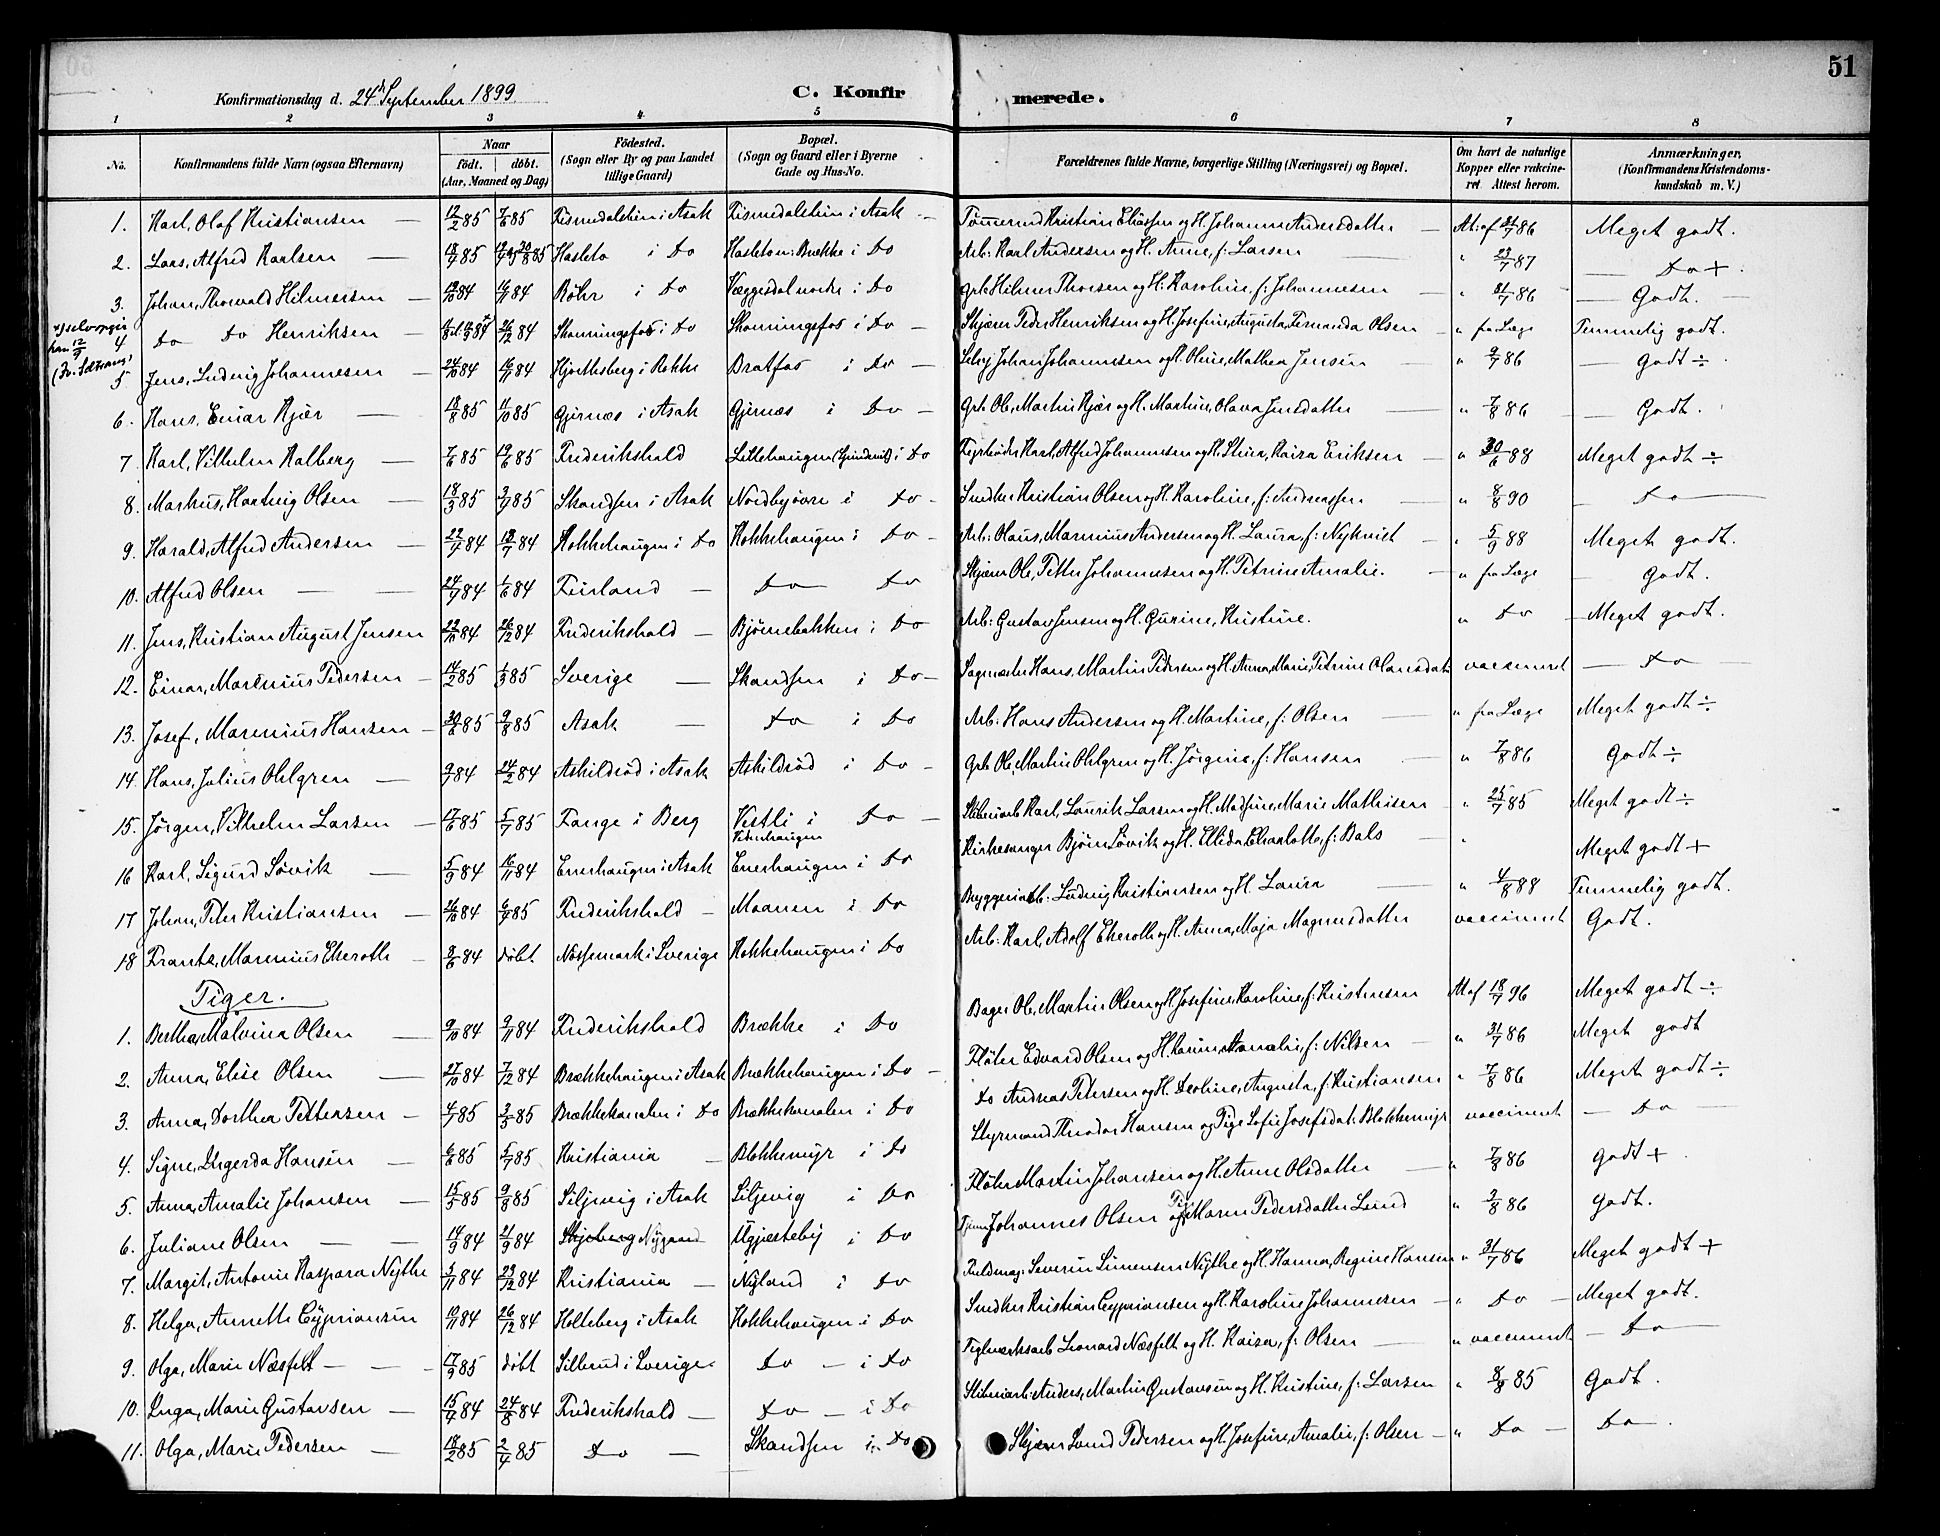 51
Konfirmationsdag d. 24de September 1899.
C. Konfirmerede.
1 2 3 4 5 6 7 8
No. Konfirmandens fulde Navn (ogsaa Efternavn) Naar født. døbt. (Aar, Maaned og Dag) Födested. (Sogn eller By og paa Landet tillige Gaard) Bopæl. (Sogn og Gaard eller i Byerne Gade og Hus-No. Forældrenes fulde Navne, borgerlige Stilling (Næringsvei) og Bopæl. Om havt de naturlige Kopper eller vakcineret. Attest herom. Anmærkninger, (Konfirmandens Kristendomskundskab m. V.)
1. Karl, Olaf Kristiansen — 12/2 85 7/6 85 i Asak i Asak Kristian Eliassen og H. Johanne Andersdatter — At: af 31/7 86 Meget godt.
2. Lars, Alfred Karlsen — 18/7 85 30/8 85 Hasleto i Do Hasleto u: Brække i Do Arb: Karl Andersen og H. Anne, f: Larsen — " 23/7 87 — Do +.
3. Johan, Thorvald Hilmersen — 84 16/11 84 Röhr i Do Væggesdal nordre i Do Grb Hilmer Thorsen og H. Karoline, f: Johannesen — " 31/7 86 — Godt. —
4 Do Do Henriksen — 84 26/12 84 Skonningsfos i Do Skonningsfos i Do — Skjærer Peder Henriksen og H. Josefine, Augusta, Fernanda Olsen — " fra Læge Temmelig godt.
5 Jens, Ludvig Johannesen — 24/10 84 16/11 84 Hjorthsberg i Rokke Bratfos i Do — Johan Johannesen og H. Oline, Mathea Jensen " 9/7 86 — Godt ÷
6. Hans, Einar Kjær — 18/8 85 11/10 85 Gjernæs i Asak Gjernæs i Do — Grb Ole, Martin Kjær og H. Martine, Olava Jensdatter — " 7/8 86 — Godt.
7. Karl, Vilhelm Kalberg — 7/6 85 19/6 85 Frederikshald Lillehaugen i Do Fyrbøder Karl, Alfred Johannesen og H. Stina, Kaisa Eriksen — " 30/6 88 Meget godt ÷
8. Markus, Hartvig Olsen — 18/3 85 3/7 85 Skandsen i Asak Nordbyøvre i Do — Snedker Kristian Olsen og H. Karoline, f: Andreassen — " 8/8 90 — Do —
9. Harald, Alfred Andersen — 22/4 84 13/7 84 Kokkehaugen i Do Kokkehaugen i Do — Arb: Olaus, Marenius Andersen og H. Laura, f: Nykvist — " 5/9 88 Meget godt.
10. Alfred Olsen — — 24/4 84 1/6 84 — Do — Do Skjærer Ole, Petter Johannesen og H. Petrine Amalie. — " fra Læge — Godt.
11. Jens, Kristian August Jensen 84 26/12 84 Frederikshald — Bjørnebakken i Do Arb: Gustav Jensen og H. Gurine, Kristine. " Do — Meget godt.
12. Einar, Marenius Pedersen — 14/2 85 1/3 85 Sverige — Skandsen i Do — Sagmester Hans, Martin Pedersen og H. Anna, Marie, Petrine vaccineret — Do
13. Josef, Marenius Hansen — 30/6 85 9/8 85 Asak — Do i Do Arb: Hans Andersen og H. Martine, f: Olsen — " fra Læge Meget godt ÷
14. Hans, Julius Ohlgren — 84 24/2 84 Askildsröd i Asak Askildsröd i Do — Grb Ole, Martin Ohlgren og H. Jørgine, f: Hansen — " 7/8 86 Godt ÷
15. Jørgen, Vilhelm Larsen — 17/6 85 5/7 85 Tange i Berg Vestli i Do — Karl, Laurits Larsen og H. Mathine, Marie Mathisen — " 25/7 85 Meget godt ÷
16 Karl, Sigurd Løvik — 5/9 84 16/11 84 Enerhaugen i Asak Enerhaugen i Do Kirkesanger Bjørn Løvik og H. Ellida Charlotte, f: Bals — " Meget godt +
17 Johan, Peter Kristiansen — 84 85 Frederikshald — Maanen i Do Bryggeriarb: Ludvig Kristiansen og H. Laura — " 4/8 88 Temmelig godt.
18 Frantz, Marenius Ekeroth — 84 døbt Nössemark i Sverige Kokkehaugen i Do Arb: Karl, Adolf Ekeroth og H. Anna, Maja Magnusdatter vaccineret Godt.
Piger.
1. Bertha, Malvina Olsen — 9/10 84 9/11 84 Frederikshald Brække i Do Bager Ole, Martin Olsen og H. Josefine, Karoline, f: Kristensen At af 18/7 96 Meget godt ÷
2. Anna, Elise Olsen — 27/10 84 7/12 84 Brækkehaugen i Asak Brækkehaugen i Do — Fløter Edvard Olsen og H. Karine, Amalie, f: Nilsen — " 31/7 86 Meget godt
3. Anna, Dorthea Pettersen — 4/1 85 3/5 85 Brækkekanalen i Do Brækkekanalen i Do Do Andreas Petersen og H. Augusta, f: Kristiansen " 7/8 86 Meget godt ÷
4. Signe, Ingerda Hansen — 85 5/7 85 Kristiania — Blokkemyr i Do Styrmand Theodor Hansen og Pige Sofie Josefsdat: Blokkemyr vaccineret — Do —
5. Anna, Amalie Johansen — 15/5 85 9/8 85 Siljevig i Asak Siljevig i Do Fløter Martin Johansen og H. Anne Olsdatter — " 7/8 86 Godt +
6. Juliane Olsen — — 14/9 84 21/9 84 Skjeberg Nygaard Ugjesteby i Do Johannes Olsen og Pige Maren Pedersdatter Lund " 3/8 86 Godt.
7. Margit, Antonie Kaspara Nythe 3/11 84 23/12 84 Kristiania — Nyland i Do Severin Simensen Nythe og H. Hanna, Regine Hansen " 31/7 86 Meget godt +
8. Helga, Annette Cypriansen 10/11 84 26/12 84 Holteberg i Asak Kokkehaugen i Do Snedker Kristian Cypriansen og H. Karoline Johannesen — " Do — Meget godt.
9. Olga, Marie Næsfelt — — 17/9 85 døbt Sillerud i Sverige. Do — i Do Teglværksarb Leonard Næsfelt og H. Kaisa, f: Olsen — " vaccineret — Do —
10. Inga, Marie Gustavsen — 15/7 84 24/8 84 Frederikshald — Do — i Do Anders, Martin Gustavsen og H. Kristine, f: Larsen " 8/8 85 Godt.
11. Olga, Marie Pedersen — 18/2 85 2/4 85 Do — Skandsen i Do Skjærer Pedersen og H. Josefine, Amalie, f: Olsen — " Do — Do —.